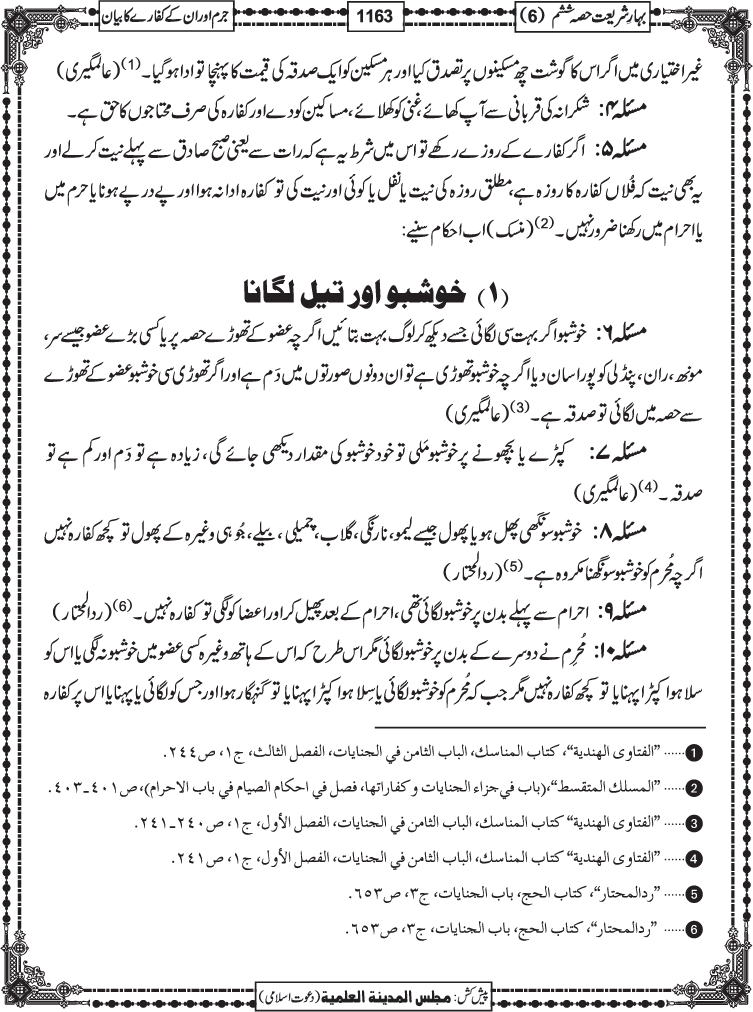 بہارِ شریعت حصہ ششم (6)
1163
جرم اور ان کے کفارے کا بیان
غیر اختیاری میں اگر اس کا گوشت چھ مسکینوں پر تصدق کیا اور ہر مسکین کو ایک صدقہ کی قیمت کا پہنچا تو ادا ہوگیا۔(1) (عالمگیری)
مسئلہ ۴: شکرانہ کی قربانی سے آپ کھائے، غنی کو کھلائے، مساکین کو دے اور کفارہ کی صرف محتاجوں کا حق ہے۔
مسئلہ ۵: اگر کفارے کے روزے رکھے تو اس میں شرط یہ ہے کہ رات سے یعنی صبح صادق سے پہلے نیت کرلے اور
یہ بھی نیت کہ فُلاں کفارہ کا روزہ ہے، مطلق روزہ کی نیت یا نفل یا کوئی اور نیت کی تو کفارہ ادا نہ ہوا اور پے در پے ہونا یا حرم میں
یا احرام میں رکھنا ضرور نہیں۔(2) (منسک) اب احکام سنیے:
(۱) خوشبو اور تیل لگانا
مسئلہ ۶: خوشبو اگر بہت سی لگائی جسے دیکھ کر لوگ بہت بتائیں اگرچہ عضو کے تھوڑے حصہ پر یا کسی بڑے عضو جیسے سر،
مونھ، ران، پنڈلی کو پورا سان دیا اگرچہ خوشبو تھوڑی ہے تو ان دونوں صورتوں میں دَم ہے اور اگر تھوڑی سی خوشبو عضو کے تھوڑے
سے حصہ میں لگائی تو صدقہ ہے۔(3) (عالمگیری)
مسئلہ ۷: کپڑے یا بچھونے پر خوشبو مَلی تو خود خوشبو کی مقدار دیکھی جائے گی، زیادہ ہے تو دَم اور کم ہے تو
صدقہ۔(4) (عالمگیری)
مسئلہ ۸: خوشبو سونگھی پھل ہو یا پھول جیسے لیمو، نارنگی، گلاب، چمیلی، بیلے، جُوہی وغیرہ کے پھول تو کچھ کفارہ نہیں
اگرچہ مُحرِم کو خوشبو سونگھنا مکروہ ہے۔(5) (ردالمحتار)
مسئلہ ۹: احرام سے پہلے بدن پر خوشبو لگائی تھی، احرام کے بعد پھیل کر اور اعضا کو لگی تو کفارہ نہیں۔(6) (ردالمحتار)
مسئلہ ۱۰: مُحرِم نے دوسرے کے بدن پر خوشبو لگائی مگر اس طرح کہ اس کے ہاتھ وغیرہ کسی عضو میں خوشبو نہ لگی یا اس کو
سلا ہوا کپڑا پہنایا تو کچھ کفارہ نہیں مگر جب کہ مُحرِم کو خوشبو لگائی یا سِلا ہوا کپڑا پہنایا تو گنہگار ہوا اور جس کو لگائی یا پہنایا اس پر کفارہ
1 ...... ”الفتاوی الهندية“، كتاب المناسك، الباب الثامن في الجنايات، الفصل الثالث، ج١، ص٢٤٤.
2 ...... ”المسلك المتقسط“،(باب في جزاء الجنايات و كفاراتها، فصل في احكام الصيام في باب الاحرام)، ص٤٠١ـ٤٠٣.
3 ...... ”الفتاوى الهندية“ كتاب المناسك، الباب الثامن في الجنايات، الفصل الأول، ج١، ص٢٤٠ـ٢٤١.
4 ...... ”الفتاوى الهندية“ كتاب المناسك، الباب الثامن في الجنايات، الفصل الأول، ج١، ص٢٤١.
5 ...... ”ردالمحتار“، كتاب الحج، باب الجنايات، ج٣، ص٦٥٣.
6 ...... ”ردالمحتار“، كتاب الحج، باب الجنايات، ج٣، ص٦٥٣.
پیش کش: مجلس المدينة العلمية (دعوت اسلامی)